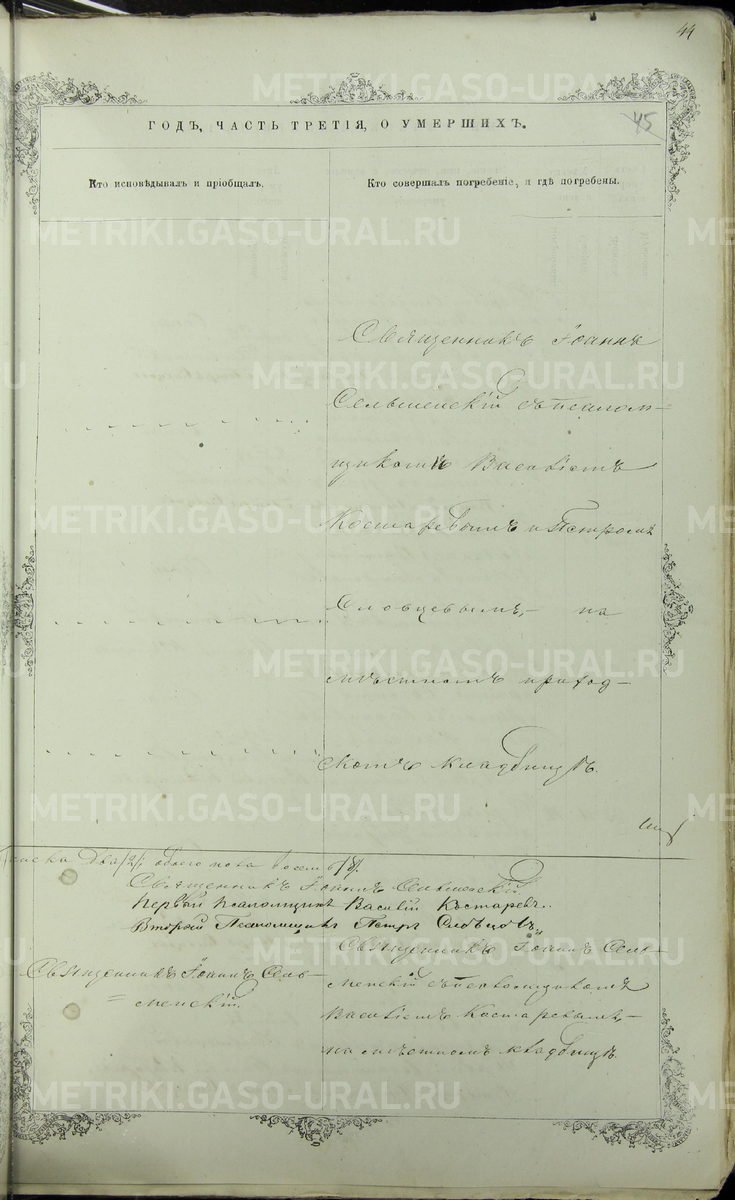 44
45
ГОДЪ, ЧАСТЬ ТРЕТІЯ, О УМЕРШИХЪ.
Кто исповѣдывалъ и пріобщалъ.
Кто совершалъ погребеніе, и гдѣ погребены.
Священникъ Іоаннъ
Сельменскій съ псалом-
щикомъ Василіемъ
Костаревымъ и Петромъ
Словцовымъ, - на
мѣстномъ приход-
скомъ кладбищѣ.
два /2/, обоего пола восемь /8/.
Священникъ Іоаннъ Сельменскій
Первый Псаломщикъ Василій Костаревъ.
Второй Псаломщикъ Петръ Словцовъ.
Священникъ Іоаннъ Сель-
менскій.
Священникъ Іоаннъ Сель-
менскій съ псаломщикомъ
Василіемъ Костаревымъ, -
на мѣстномъ кладбищѣ.
METRIKI.GASO-URAL.RU